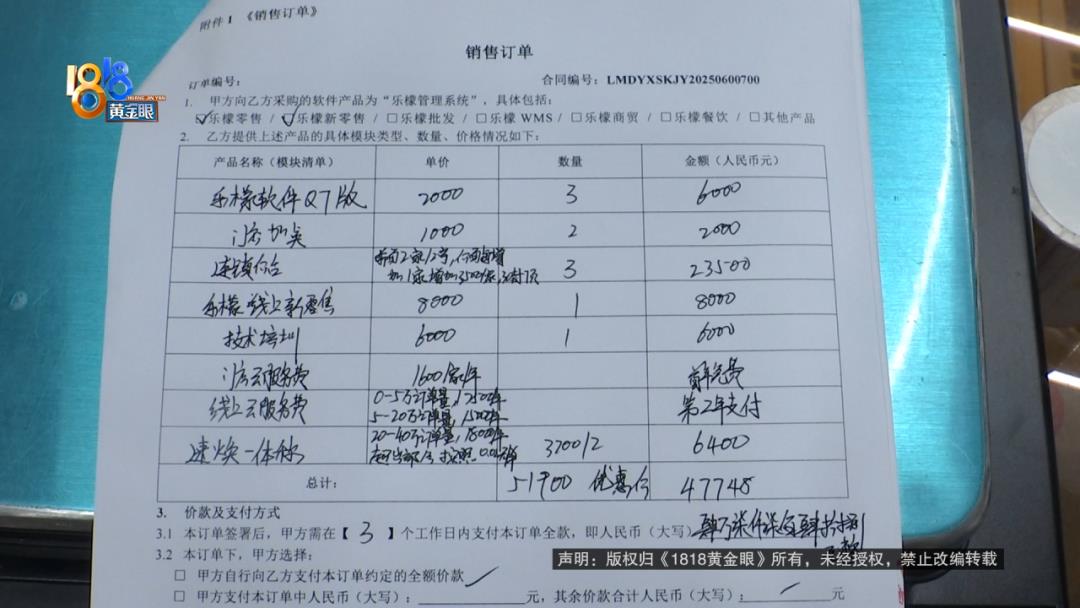 附件1 《销售订单》
1818
黄金眼
销售订单
订单编号：
合同编号：LMDYXSKJY20250600700
1. 甲方向乙方采购的软件产品为“乐檬管理系统”，具体包括：
☑乐檬零售 / ☑乐檬新零售 / □乐檬批发 / □乐檬 WMS / □乐檬商贸 / □乐檬餐饮 / □其他产品
2. 乙方提供上述产品的具体模块类型、数量、价格情况如下：
产品名称（模块清单） 单价 数量 金额（人民币元）
乐檬软件Q7版 2000 3 6000
门店加点 1000 2 2000
连锁后台 3 23500
乐檬线上新零售 8000 1 8000
技术培训 6000 1 6000
门店云服务费 1600/家/年 首年免费
线上云服务费 0-5万订单量，12500/年 第2年支付
5-20万订单量，15000/年
20-40万订单量，18000/年
一体称 3200/2 6400
总计： 51900 优惠价 47748
3. 价款及支付方式
3.1 本订单签署后，甲方需在【 3 】个工作日内支付本订单全款，即人民币（大写）肆万柒仟柒佰肆拾捌
3.2 本订单下，甲方选择：
□ 甲方自行向乙方支付本订单约定的全额价款
□ 甲方支付本订单中人民币（大写）：元，其余价款合计人民币（大写）：元
声明：版权归《1818黄金眼》所有，未经授权，禁止改编转载